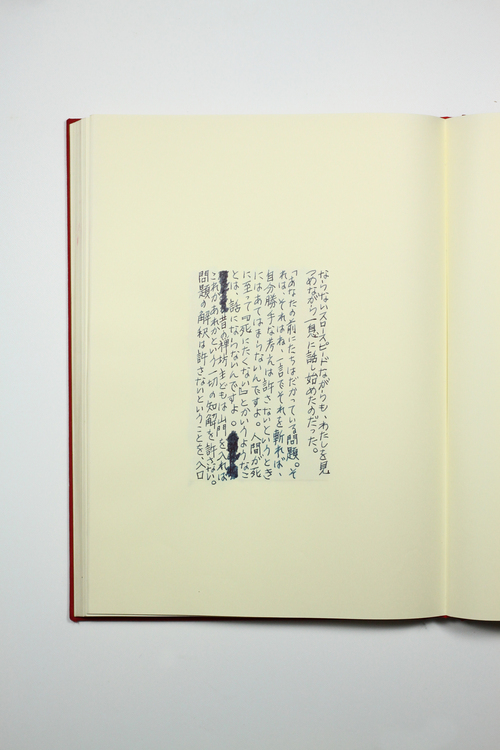 ならないスロースピードながらも、わたしを見
つめながら一息に話し始めたのだった。
「あなたの前にたちはだかっている問題。そ
れは、それはね、一言でそれを斬れば、
自分勝手な考えは許さないというとき
にはあてはまらないんですよ。人間が死
に至って『死にたくない』とかいうようなこ
とは、話にならないんですよ。
昔の禅坊主どもは山門を入れば
これがあれがという一切の知解を許さない。
問題の解釈は許さないということを、入口